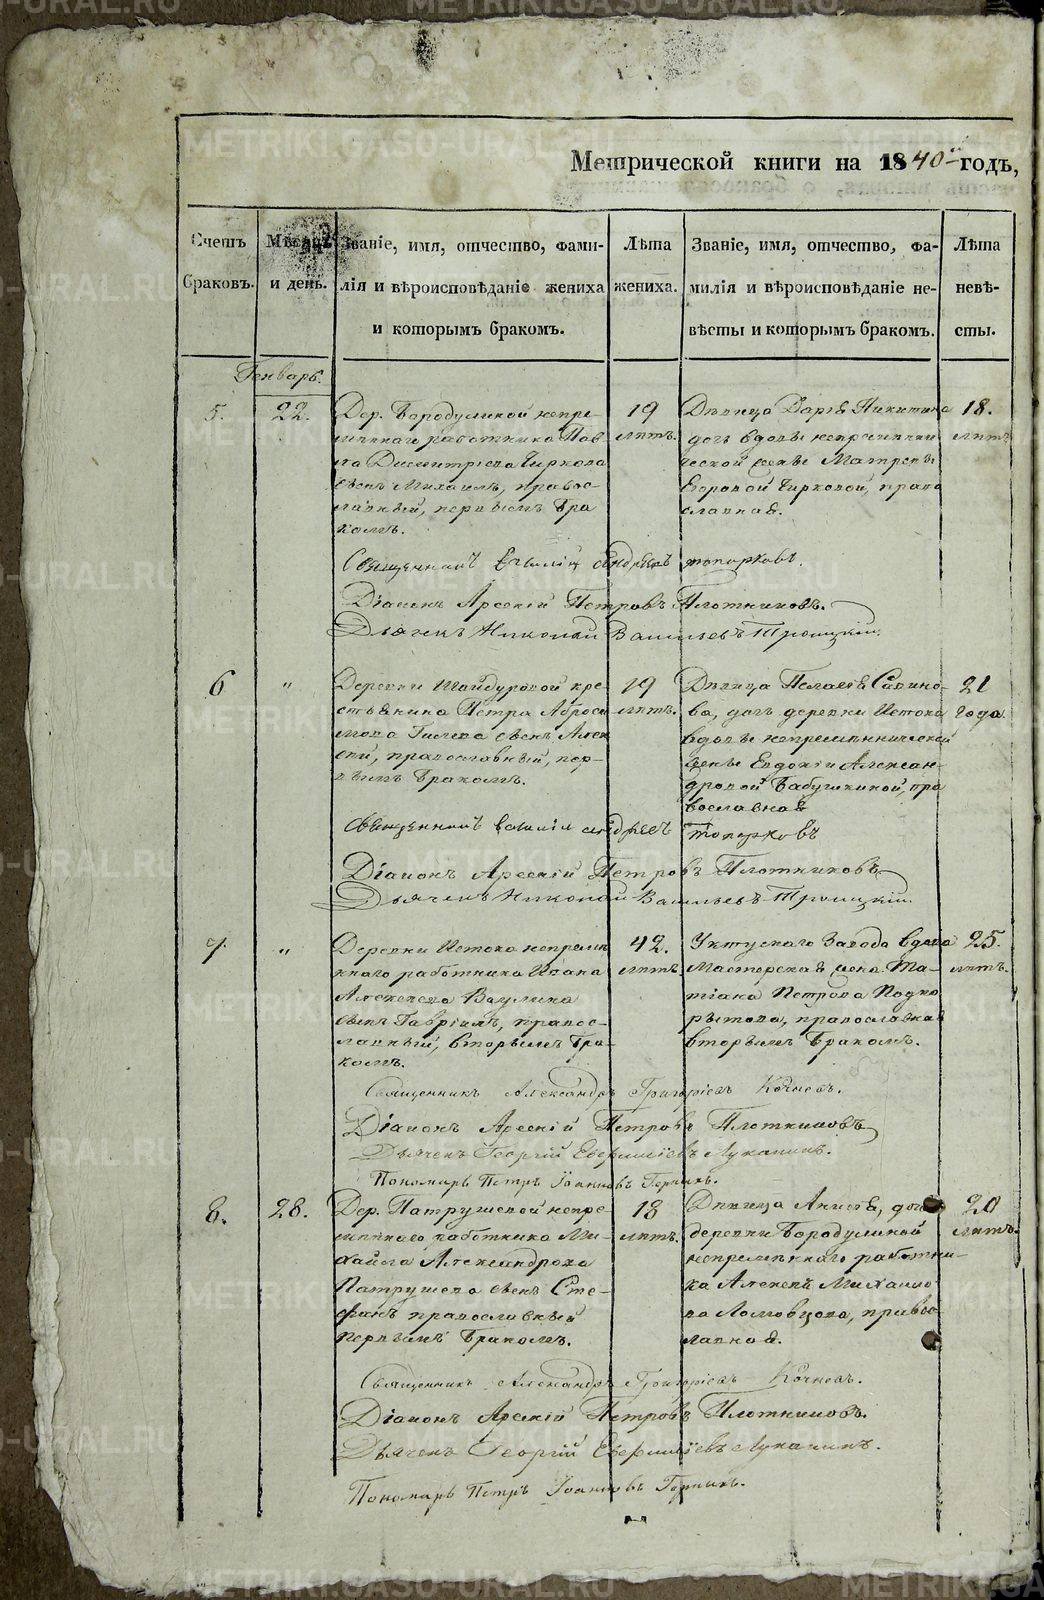 Метрической книги на 1840й годъ,
Счетъ браковъ.
Мѣсяцъ и день.
Званіе, имя, отчество, фами-
лія и вѣроисповѣданіе жениха
и которымъ бракомъ.
Лѣта
жениха.
Званіе, имя, отчество, фа-
милія и вѣроисповѣданіе не-
вѣсты и которымъ бракомъ.
Лѣта
невѣ-
сты.
Генварь.
5.
22.
Дер. Бородулиной непре-
мѣннаго работника Пав
ла Диметріева Чиркова
сынъ Михаилъ, правос-
лавный, первымъ бра
комъ.
19
лѣтъ.
Дѣвица Дарья Никитина
дочь вдовы непремѣнни
ческой жены Матрены
Егоровой Чирковой, право
славная.
18.
лѣтъ
Священникъ Василій Андреевъ Топорковъ.
Діаконъ Арсеній Петровъ Плотниковъ.
Дьячекъ Николай Васильевъ Троицкій.
6
"
Деревни Шайдуровой кре-
стьянина Петра Аброси
мова Гилева сынъ Алек
сѣй, православный, пер-
вымъ бракомъ.
19
лѣтъ.
Дѣвица Пелагея Савино-
ва, дочь деревни Истока
вдовы непремѣннической
жены Евдокіи Алексан-
дровой Бабушкиной, пра
вославная
21
года
Священникъ Василій Андреевъ Топорковъ
Діаконъ Арсеній Петровъ Плотниковъ
Дьячекъ Николай Васильевъ Троицкій.
7.
"
Деревни Истока непремѣ
ннаго работника Ивана
Алексѣева Ваулина
сынъ Гавріилъ, правос-
лавный, вторымъ бра-
комъ.
42.
лѣтъ.
Уктускаго завода вдова
Мастерская жена Та-
тіана Петрова Подко
рытова, православная
вторымъ бракомъ.
25.
лѣтъ.
Священникъ Александръ Григоріевъ Кочневъ.
Діаконъ Арсеній Петровъ Плотниковъ
Дьячекъ Георгій Евфиміевъ Луканинъ.
Пономарь Петръ Іоанновъ
8.
28.
Дер. Патрушевой непре
мѣннаго работника Ми-
хайла Александрова
Патрушева сынъ Сте-
фанъ православный
первымъ бракомъ.
18
лѣтъ.
Дѣвица Анисья, дочь
деревни Бородулиной
непремѣннаго работни-
ка Алексѣя Михайло
ва Ломовцова, правос-
лавная.
20
лѣтъ.
Священникъ Александръ Григоріевъ Кочневъ.
Діаконъ Арсеній Петровъ Плотниковъ.
Дьячекъ Георгій Евфиміевъ Луканинъ.
Пономарь Петръ Іоанновъ
METRIKI.GASO-URAL.RU